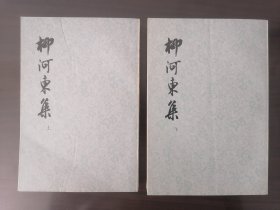 柳河東集
上
柳河東集